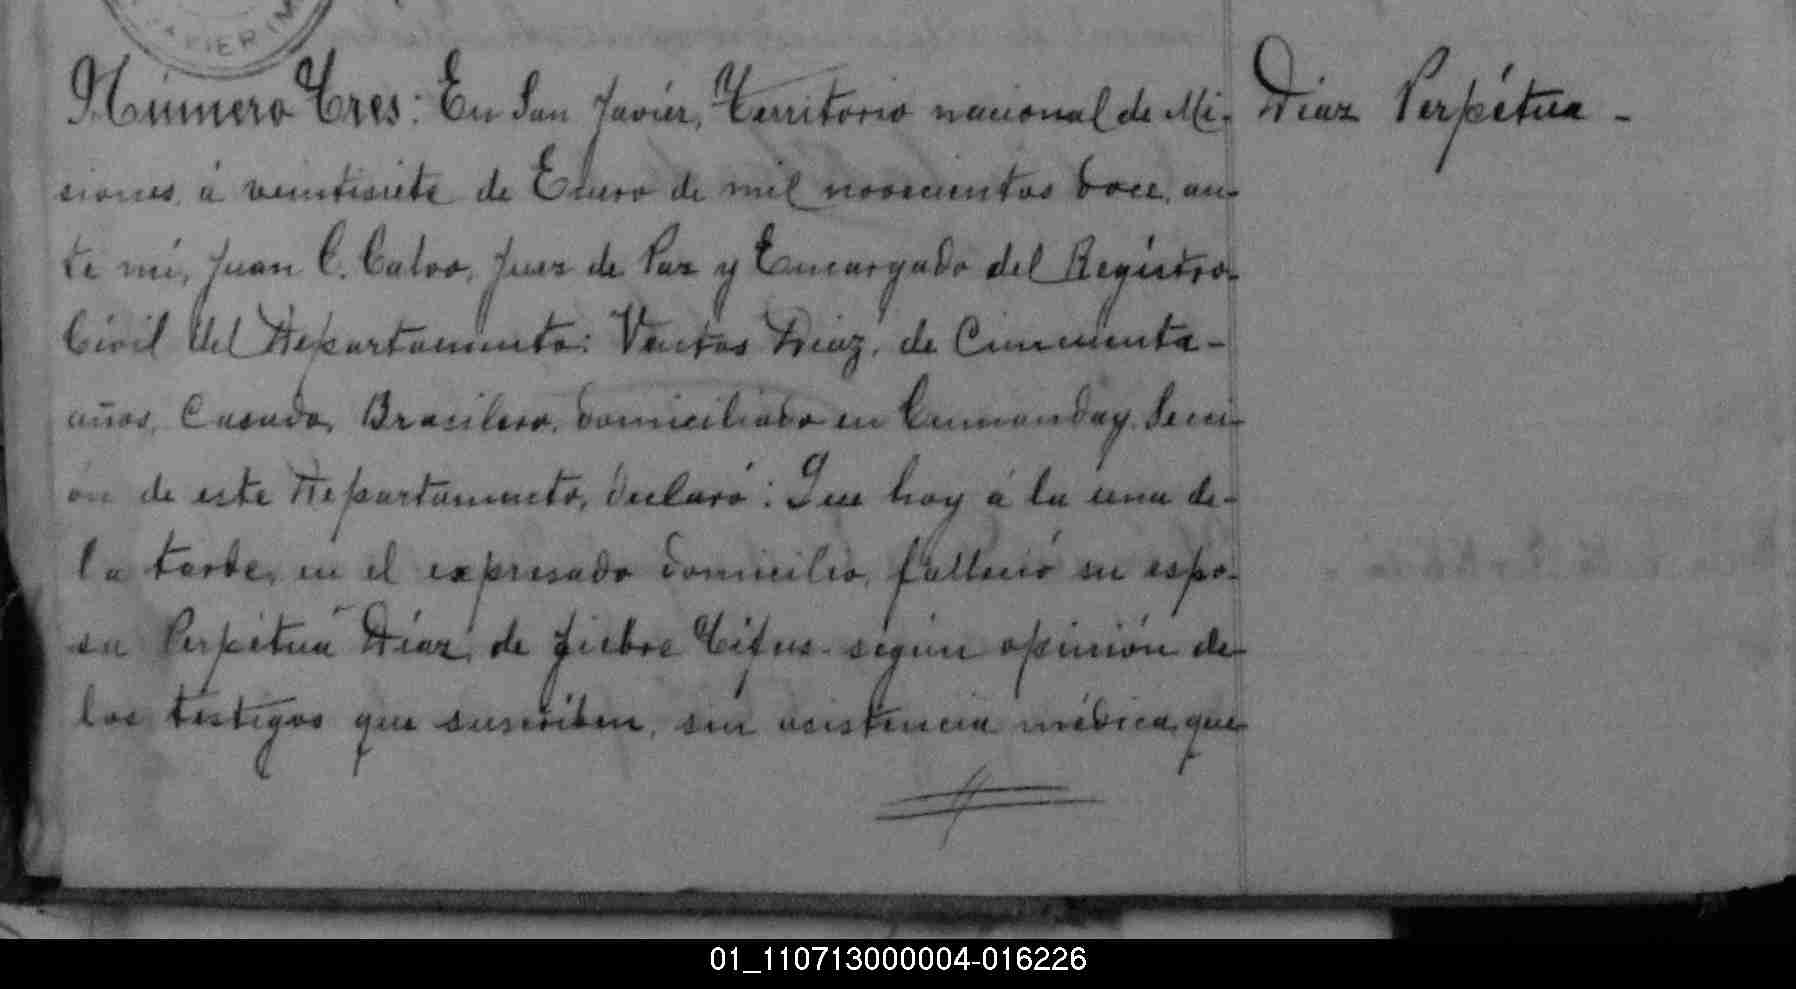 AVIER
Número Tres: En San Javier, Territorio nacional de Mi-
Diaz Perpétua -
siones, á veintisiete de Enero de mil novecientos doce, an-
te mí, Juan C. Calvo, Juez de Paz y Encargado del Registro
Civil del Departamento: Ventos Diaz, de Cincuenta-
años, Casado, Brasilero, domiciliado en Cumanday, Secci-
ón de este Departamento, declaró: Que hoy á la una de-
la tarde, en el expresado domicilio, falleció su espo-
sa Perpétua Díaz, de fiebre Tifus segun opinión de
los testigos que suscriben, sin asistencia médica, que
01_110713000004-016226